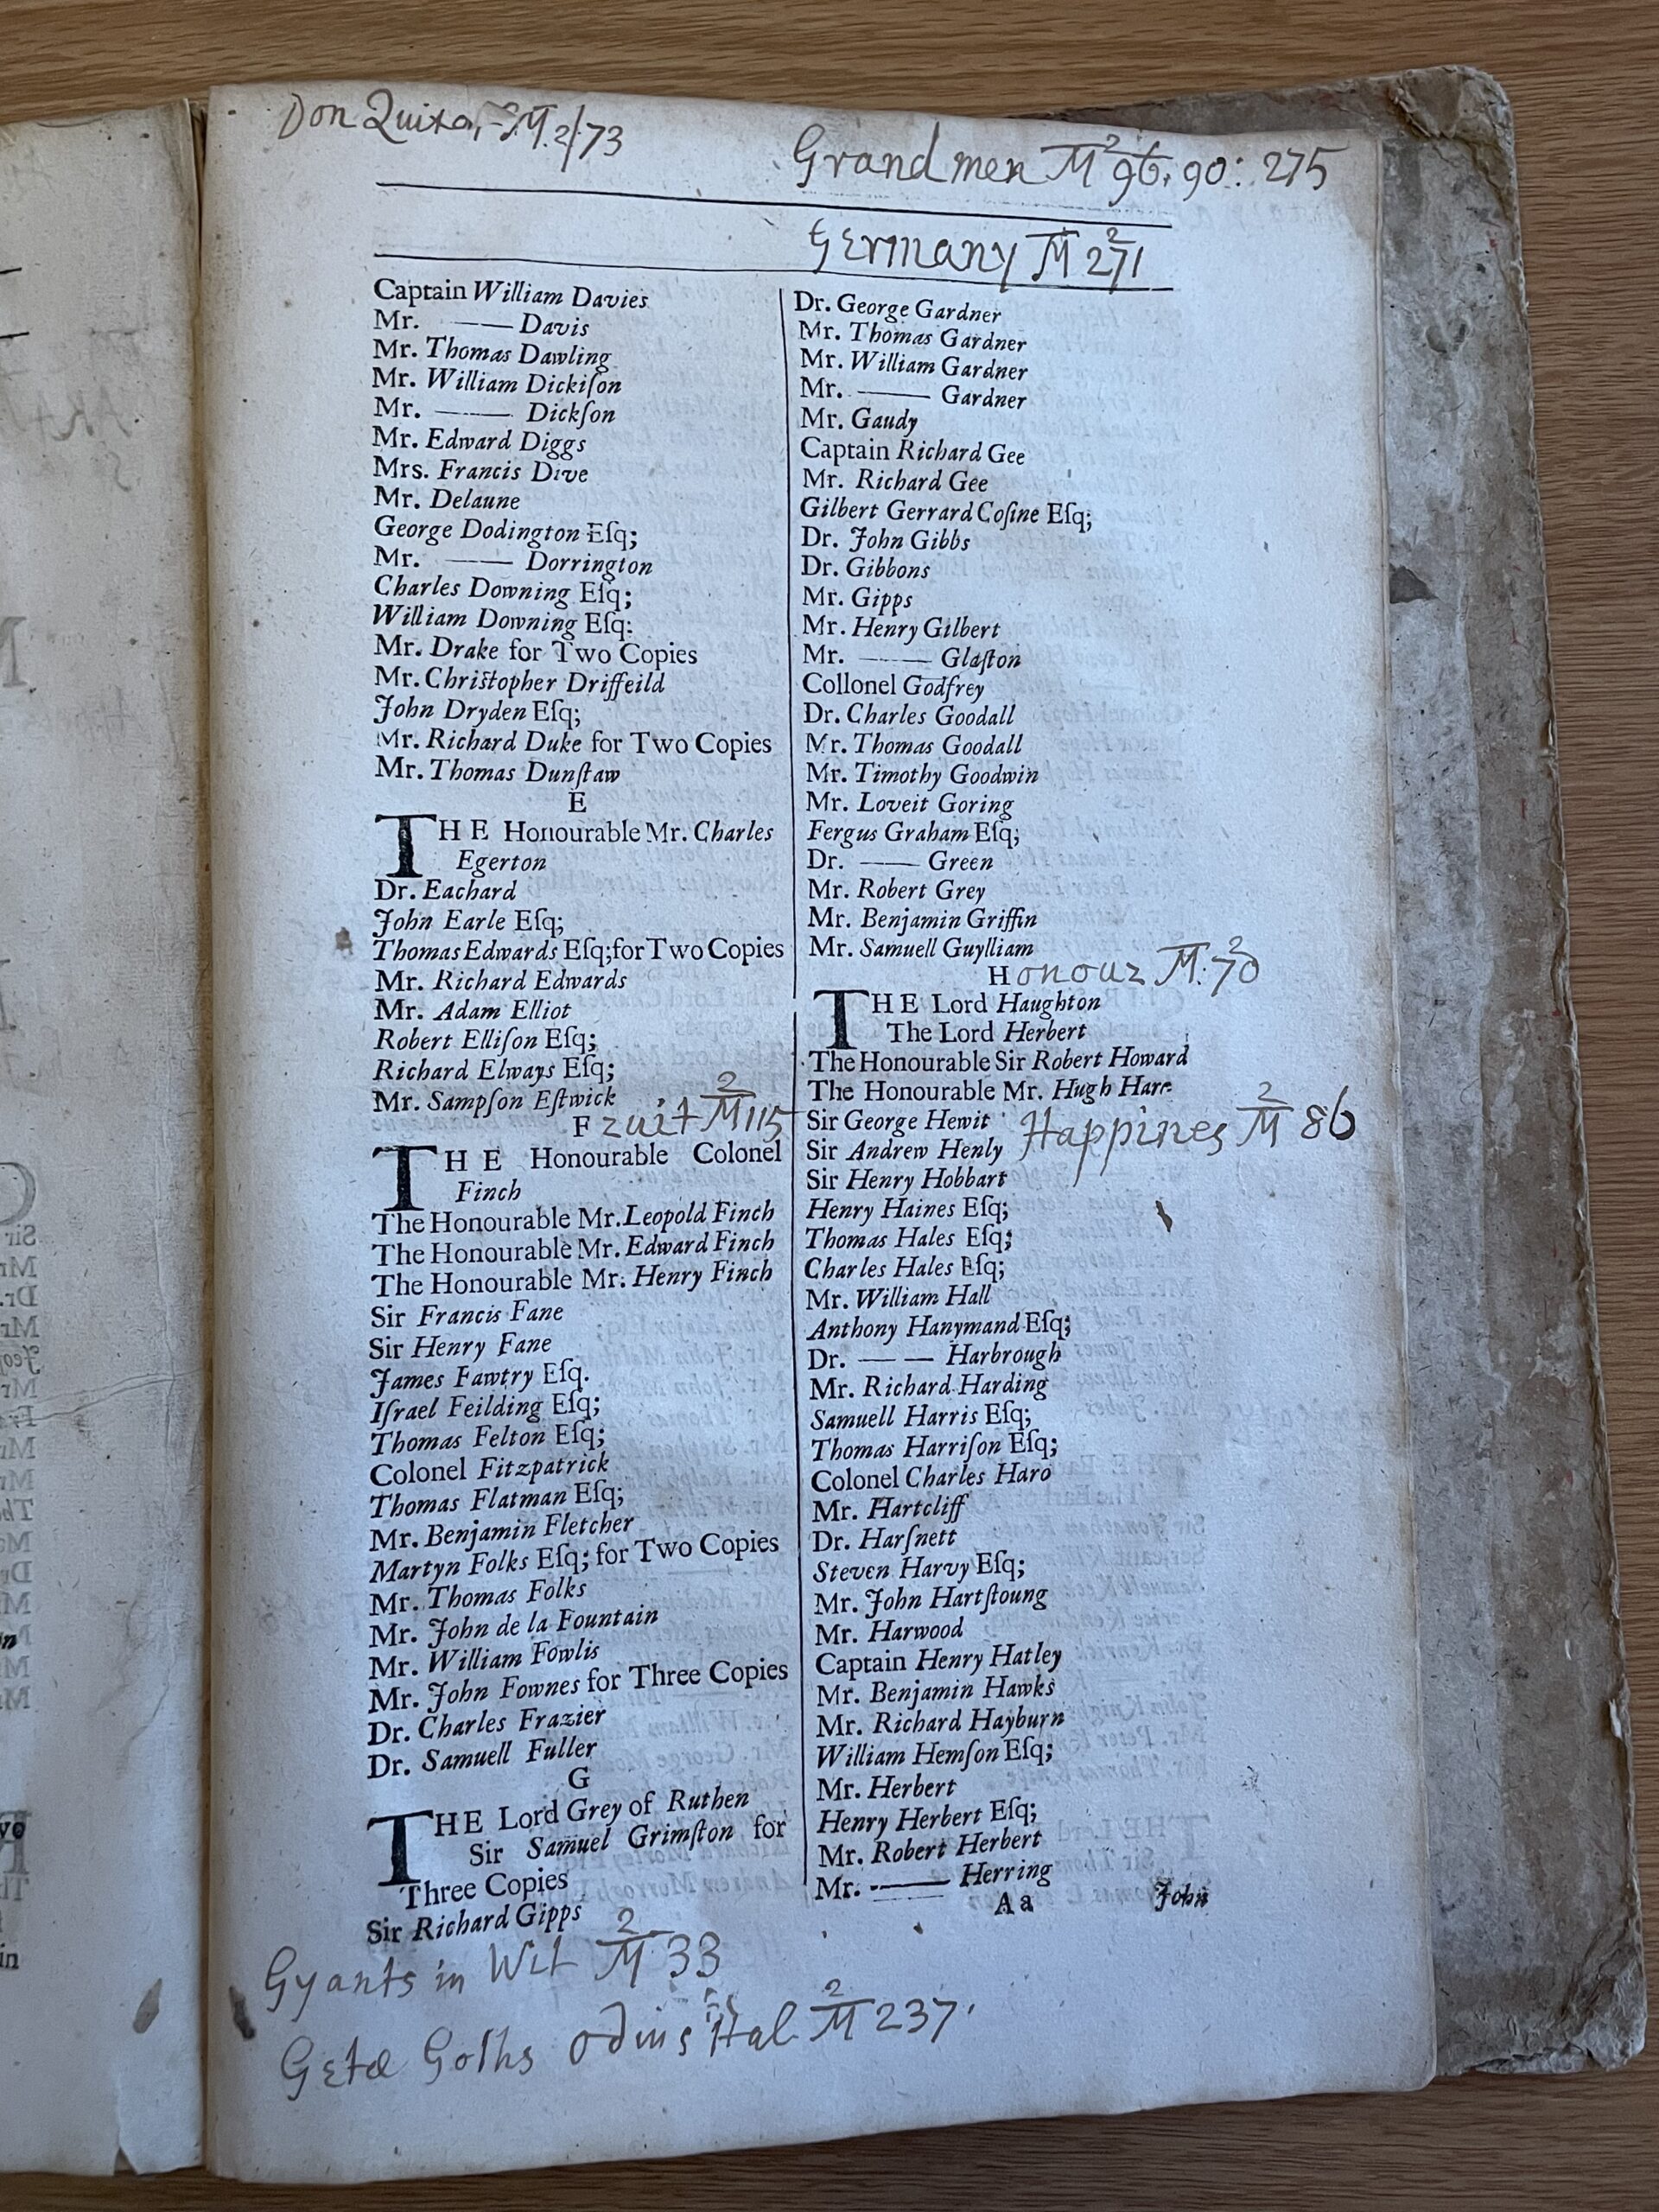 Don Quixo, M 2/73
Grand men M 2 96. 90: 275
Germany M 2 271
Captain William Davies
Mr. —— Davis
Mr. Thomas Dawling
Mr. William Dickiſon
Mr. —— Dickſon
Mr. Edward Diggs
Mrs. Francis Dive
Mr. Delaune
George Dodington Eſq;
Mr. —— Dorrington
Charles Downing Eſq;
William Downing Eſq:
Mr. Drake for Two Copies
Mr. Chriſtopher Driffeild
John Dryden Eſq;
Mr. Richard Duke for Two Copies
Mr. Thomas Dunſtaw
E
THE Honourable Mr. Charles
Egerton
Dr. Eachard
John Earle Eſq;
Thomas Edwards Eſq; for Two Copies
Mr. Richard Edwards
Mr. Adam Elliot
Robert Elliſon Eſq;
Richard Elways Eſq;
Mr. Sampſon Eſtwick
Fruit M 2 115
THE Honourable Colonel
Finch
The Honourable Mr. Leopold Finch
The Honourable Mr. Edward Finch
The Honourable Mr. Henry Finch
Sir Francis Fane
Sir Henry Fane
James Fawtry Eſq.
Iſrael Feilding Eſq;
Thomas Felton Eſq;
Colonel Fitzpatrick
Thomas Flatman Eſq;
Mr. Benjamin Fletcher
Martyn Folks Eſq; for Two Copies
Mr. Thomas Folks
Mr. John de la Fountain
Mr. William Fowlis
Mr. John Fownes for Three Copies
Dr. Charles Frazier
Dr. Samuell Fuller
G
THE Lord Grey of Ruthen
Sir Samuel Grimſton for
Three Copies
Sir Richard Gipps
Dr. George Gardner
Mr. Thomas Gardner
Mr. William Gardner
Mr. —— Gardner
Mr. Gaudy
Captain Richard Gee
Mr. Richard Gee
Gilbert Gerrard Coſine Eſq;
Dr. John Gibbs
Dr. Gibbons
Mr. Gipps
Mr. Henry Gilbert
Mr. —— Glaſton
Collonel Godfrey
Dr. Charles Goodall
Mr. Thomas Goodall
Mr. Timothy Goodwin
Mr. Loveit Goring
Fergus Graham Eſq;
Dr. —— Green
Mr. Robert Grey
Mr. Benjamin Griffin
Mr. Samuell Guylliam
Honour M. 2 70
THE Lord Haughton
The Lord Herbert
The Honourable Sir Robert Howard
The Honourable Mr. Hugh Hare
Sir George Hewit
Happines M 2 86
Sir Andrew Henly
Sir Henry Hobbart
Henry Haines Eſq;
Thomas Hales Eſq;
Charles Hales Eſq;
Mr. William Hall
Anthony Hanymand Eſq;
Dr. —— Harbrough
Mr. Richard Harding
Samuell Harris Eſq;
Thomas Harriſon Eſq;
Colonel Charles Haro
Mr. Hartcliff
Dr. Harſnett
Steven Harvy Eſq;
Mr. John Hartſtoung
Mr. Harwood
Captain Henry Hatley
Mr. Benjamin Hawks
Mr. Richard Hayburn
William Hemſon Eſq;
Mr. Herbert
Henry Herbert Eſq;
Mr. Robert Herbert
Mr. —— Herring
Aa John
Gyants in Wit M 2 33
Getæ Goths odins Hal M 2 237